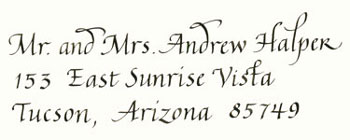 Mr. and Mrs. Andrew Halper
153 East Sunrise Vista
Tucson, Arizona 85749